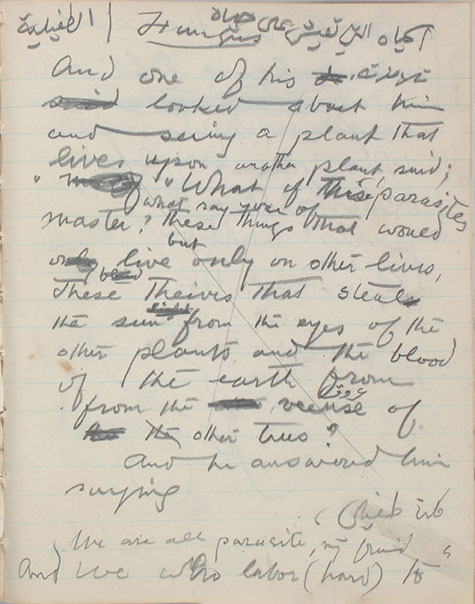 الطفيلية | Fungus احياء التي تعيش على حياة
And one of his
said looked about him
and seeing a plant that
lives upon another plant, said;
" " What of these parasites
what say you of
master? these things that would
but
only live only on other lives,
blind
These Theives that steals
light
the sun from the eyes of the
other plants and the blood
of the earth from
عروق
from the veense of
the other trees?
And he answered him
saying
We are all parasite, my friend
And We who labor (hard) to